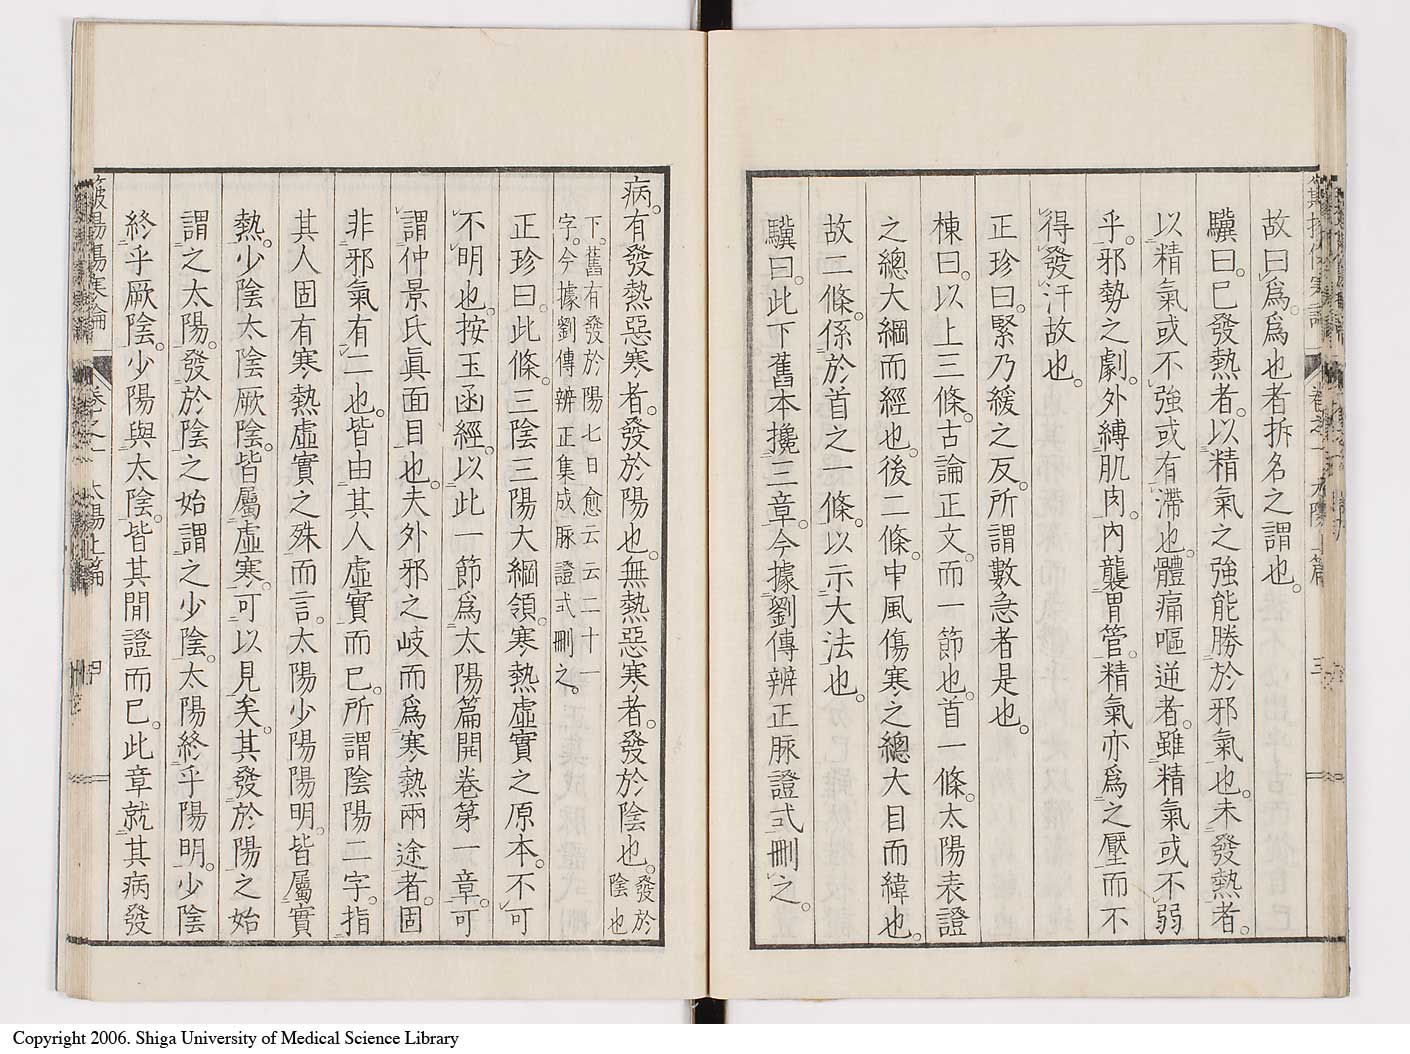 故曰。爲爲也者拆名之謂也。
驥曰。已發熱者。以精氣之強能勝於邪氣也。未發熱者。
以精氣或不強或有滯也。體痛嘔逆者。雖精氣或不弱
乎。邪勢之劇。外縛肌肉。內襲胃管。精氣亦爲之壓而不
得發汗故也。
正珍曰。緊乃緩之反。所謂數急者是也。
棟曰。以上三條。古論正文。而一節也。首一條。太陽表證
之總大綱而經也。後二條。中風傷寒之總大目而緯也。
故二條。係於首之一條。以示大法也。
驥曰。此下舊本攙三章。今據劉傳辨正脉證式刪之。
病。有發熱惡寒者。發於陽也。無熱惡寒者。發於陰也。發於
陰也
下。舊有發於陽七日愈云云二十一
字。今據劉傳辨正集成脉證式刪之。
正珍曰。此條。三陰三陽大綱領。寒熱虛實之原本。不可
不明也。按玉函經。以此一節爲太陽篇開卷第一章。可
謂仲景氏眞面目也。夫外邪之岐而爲寒熱兩途者。固
非邪氣有二也。皆由其人虛實而已。所謂陰陽二字。指
其人固有寒熱虛實之殊而言。太陽少陽陽明。皆屬實
熱。少陰太陰厥陰。皆屬虛寒。可以見矣。其發於陽之始
謂之太陽。發於陰之始謂之少陰。太陽終乎陽明。少陰
終乎厥陰。少陽與太陰。皆其間證而已。此章就其病發
Copyright 2006. Shiga University of Medical Science Library